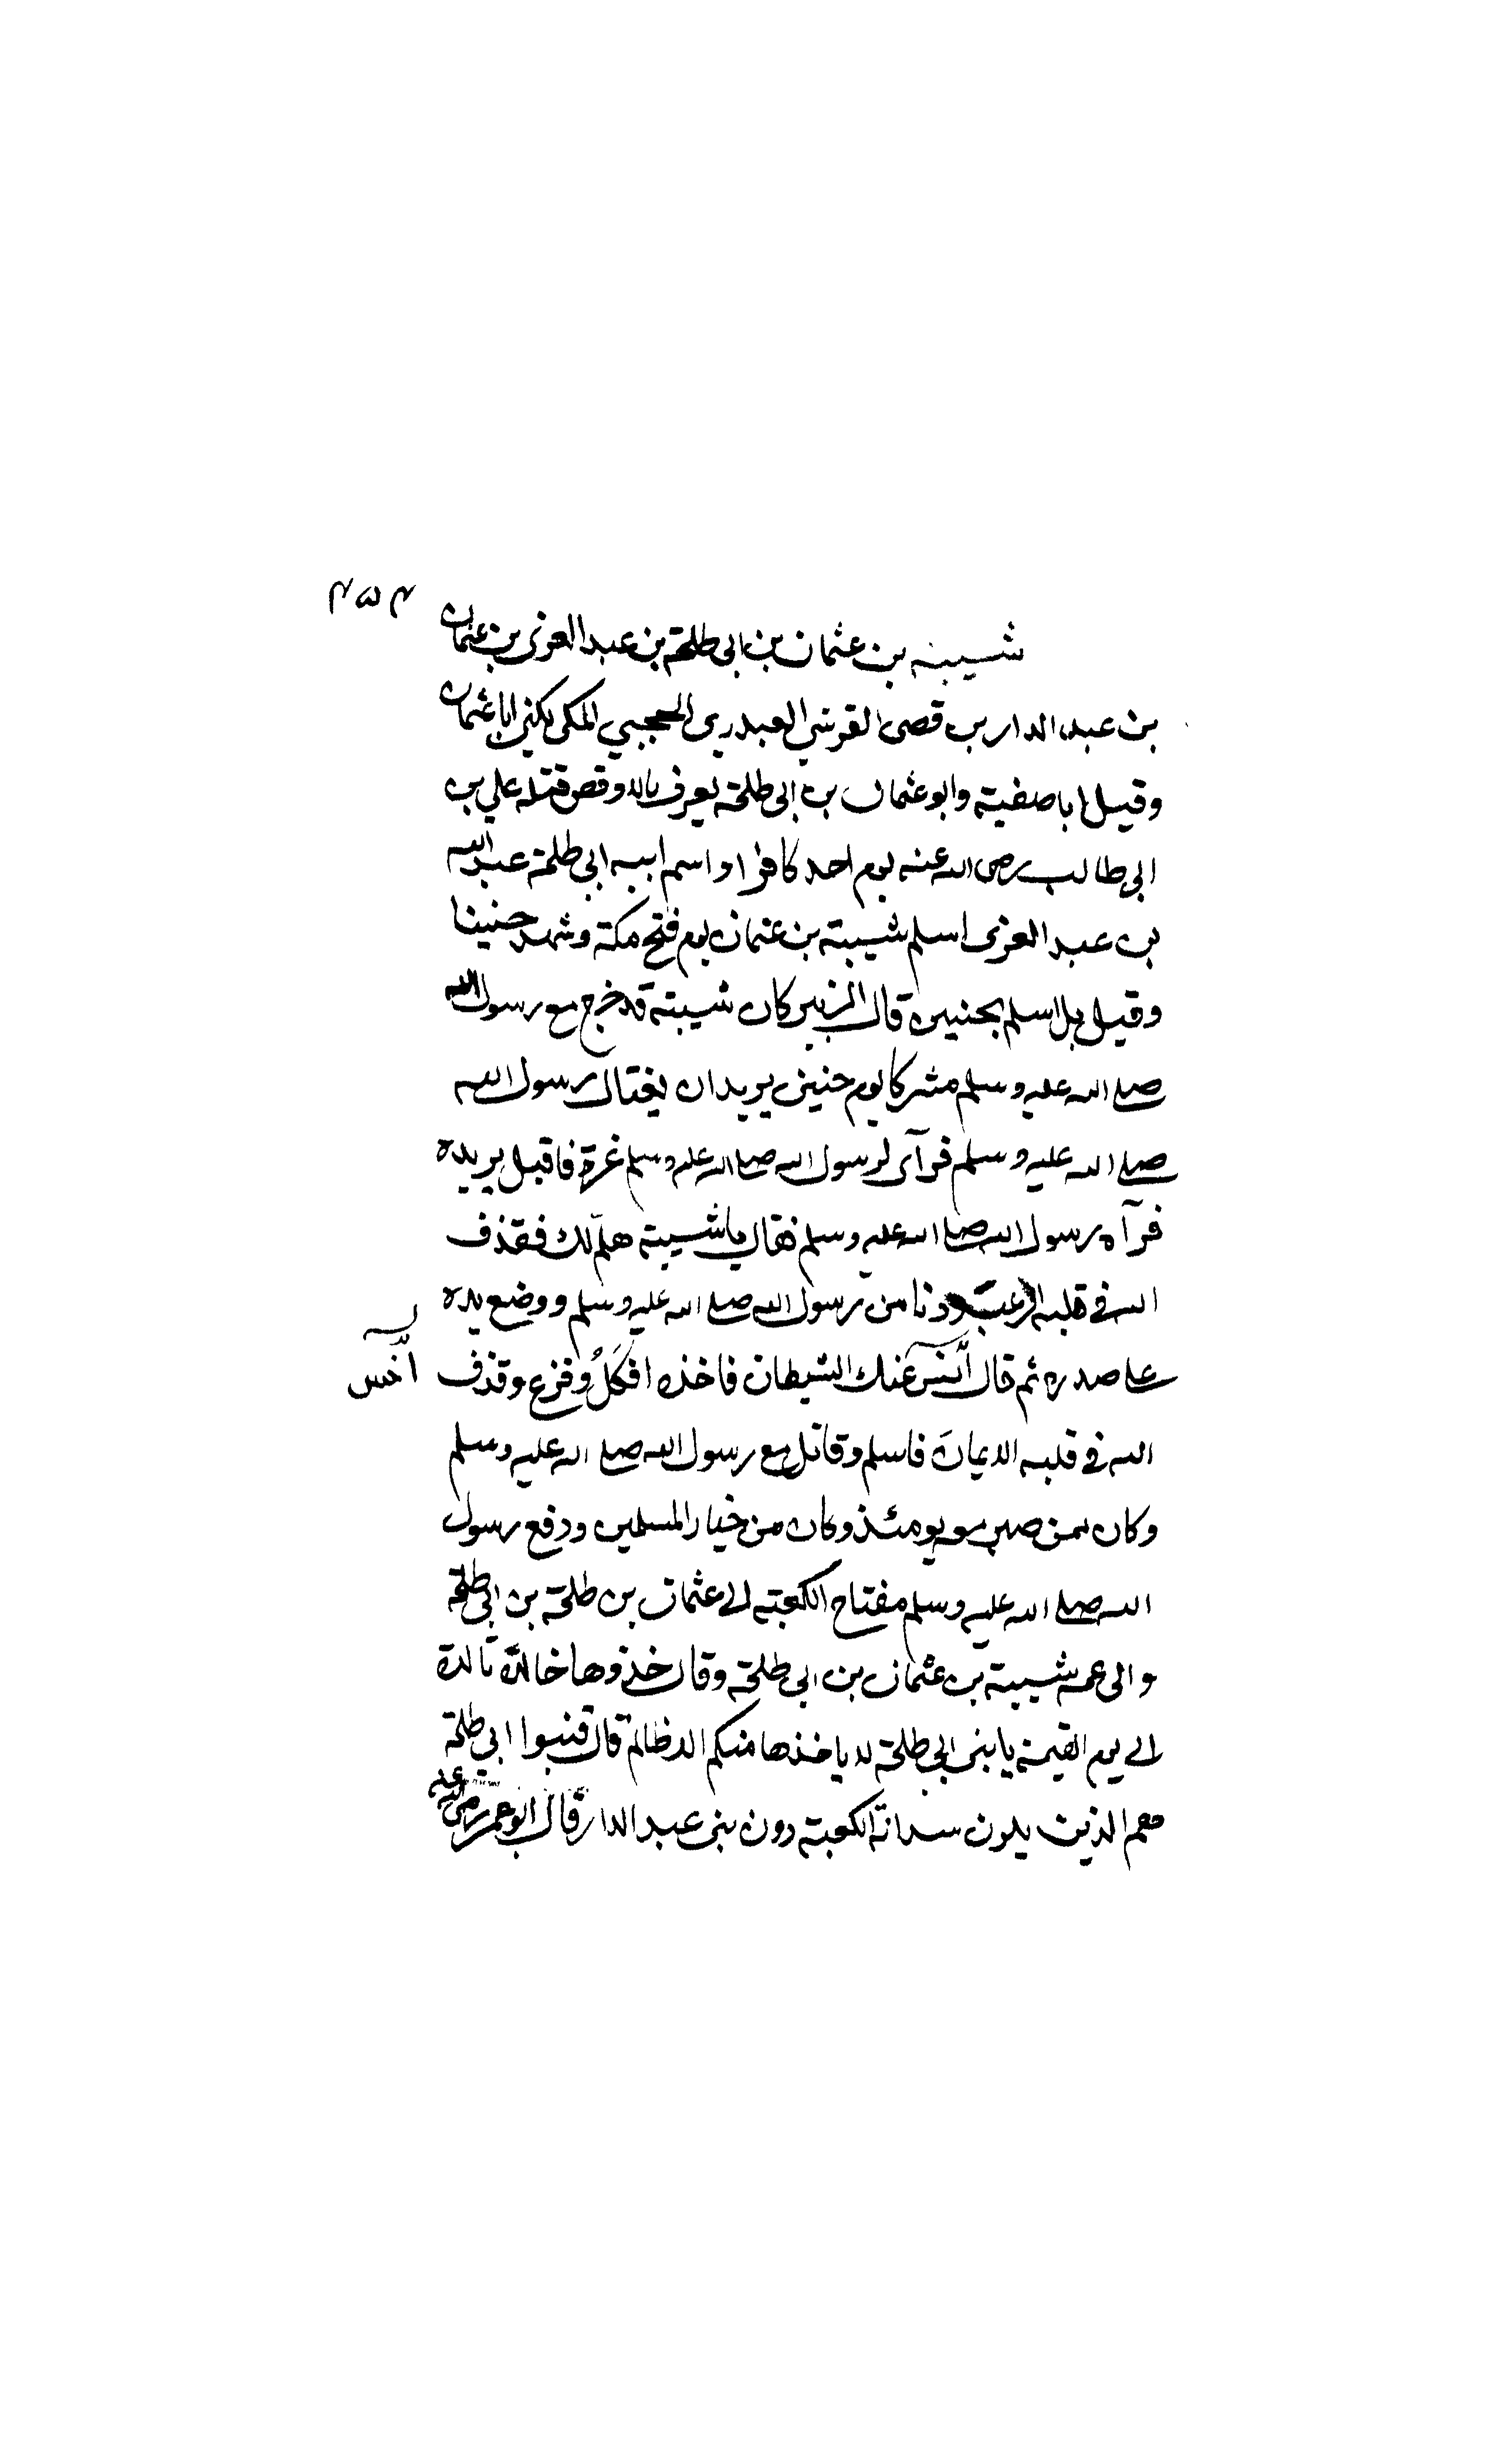 ٣٥٣
شيبة بن عثمان بن ابى طلحة بن عبد العزى بن عثمان
بن عبد الدار بن قصى القرشي العبدري الحجبي المكى يكنى ابا عثمان
وقيل ابا صفية وابو عثمان بن ابى طلحة يعرف بالاوقص قتله علي بن
ابى طالب رضى الله عنه يوم احد كافرا واسم ابيه ابى طلحة عبد الله
بن عبد العزى اسلم شيبة بن عثمان يوم فتح مكة وشهد حنينا
وقيل بل اسلم بحنين قال الزبير كان شيبة قد خرج مع رسول الله
صلى الله عليه وسلم مشركا يوم حنين يريد ان يغتال رسول الله
صلى الله عليه وسلم فرآى لرسول الله صلى الله عليه وسلم غرة فاقبل يريده
فرآه رسول الله صلى الله عليه وسلم فقال يا شيبة هلمّ لك فقذف
الله في قلبه الرعب ودنا من رسول الله صلى الله عليه وسلم ووضع يده
على صدره ثم قال عنك الشيطان فاخذه افكلُ وفزع وقذف
اخس
الله في قلبه الايمان فاسلم وقاتل مع رسول الله صلى الله عليه وسلم
وكان ممن صبر معه يومئذ وكان من خيار المسلمين ودفع رسول
الله صلى الله عليه وسلم مفتاح الكعبة الى عثمان بن طلحة بن ابى طلحة
والى عمه شيبة بن عثمان بن ابى طلحة وقال خذوها خالدة تالدة
الى يوم القيمة يا بنى ابى طلحة لا ياخذها منكم الا ظالم قال فبنوا ابي طلحة
هم الذين يلون سدانة الكعبة دون بنى عبد الدار قال ابو عمر رضى الله عنه